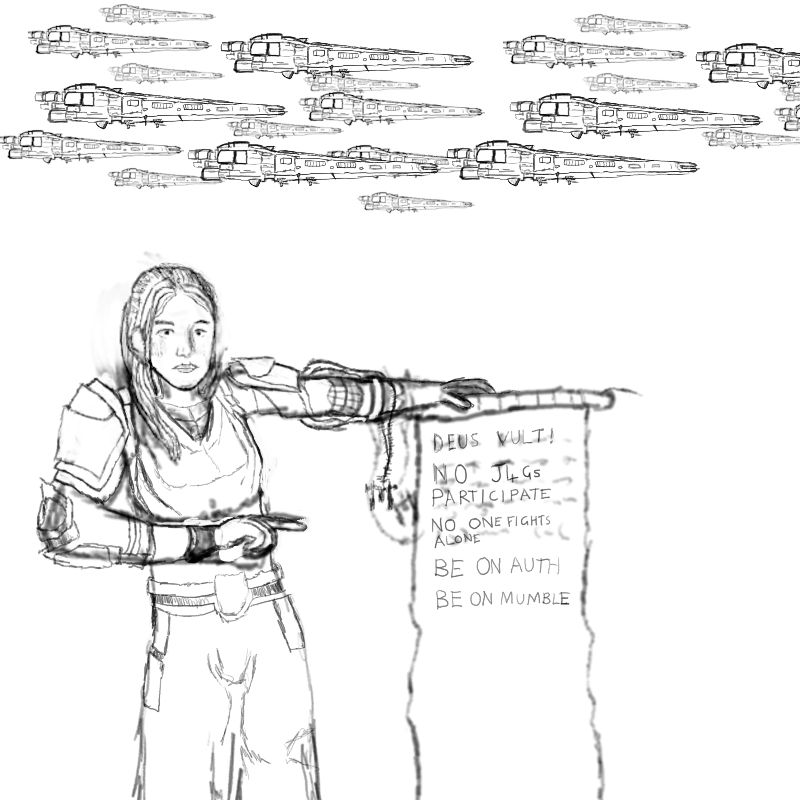 DEUS VULT!
NO J4Gs
PARTICIPATE
NO ONE FIGHTS
ALONE
BE ON AUTH
BE ON MUMBLE